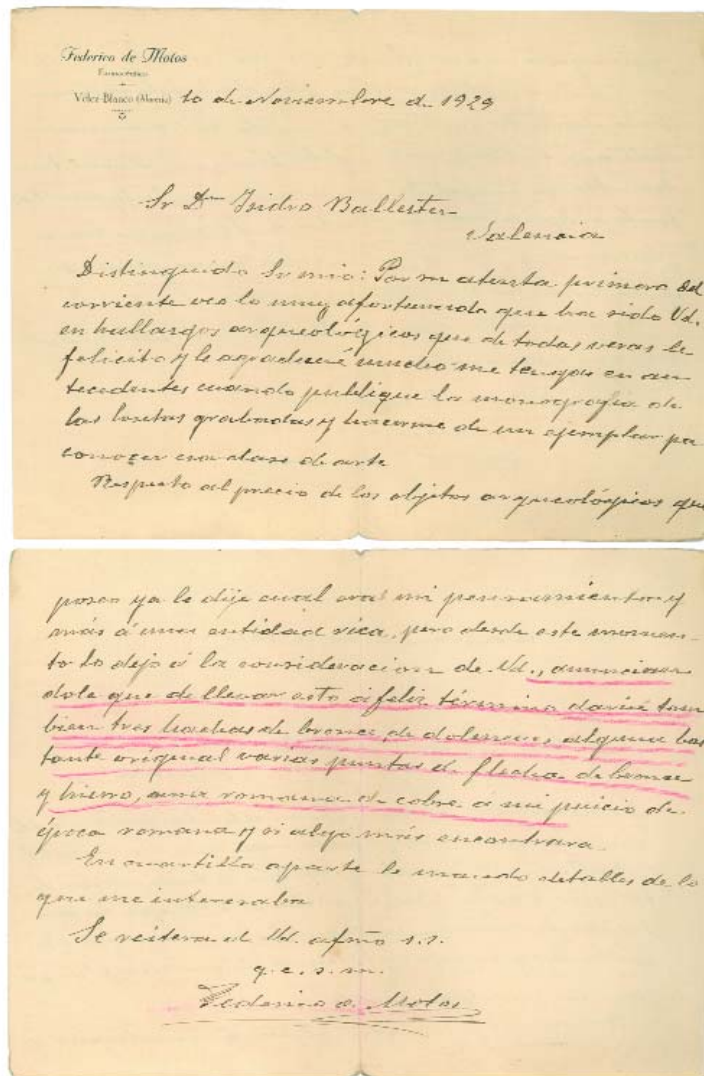 Federico de Motos
Farmacéutico
Vélez-Blanco (Almería) 10 de Noviembre de 1929
Sr Dn Isidro Ballester
Valencia
Distinguido Sr mio: Por su atenta primero del
corriente veo lo muy afortunado que ha sido Vd.
en hallazgos arqueológicos que de todas veras le
felicito y le agradeceré mucho me tenga en an
tecedentes cuando publique la monografia de
las losetas grabadas y hacerme de un ejemplar pa
conocer esa clase de arte
Respecto al precio de los objetos arqueológicos que
poseo ya le dije cual era mi pensamiento y
más á una entidad rica, pero desde este momen-
to lo dejo á la consideracion de Vd., anuncian
dole que de llevar esto á feliz término daría tam
bien tres hachas de bronce, de dolmenes, alguna bas
tante original varias puntas de flecha de bronce
y hierro, una romana de cobre á mi juicio de
época romana y si algo más encontrara.
En cuartilla aparte le mando detalles de lo
que me interesaba
Se reitera de Vd. afmo s.s.
q.e.s.m.
Federico de Motos